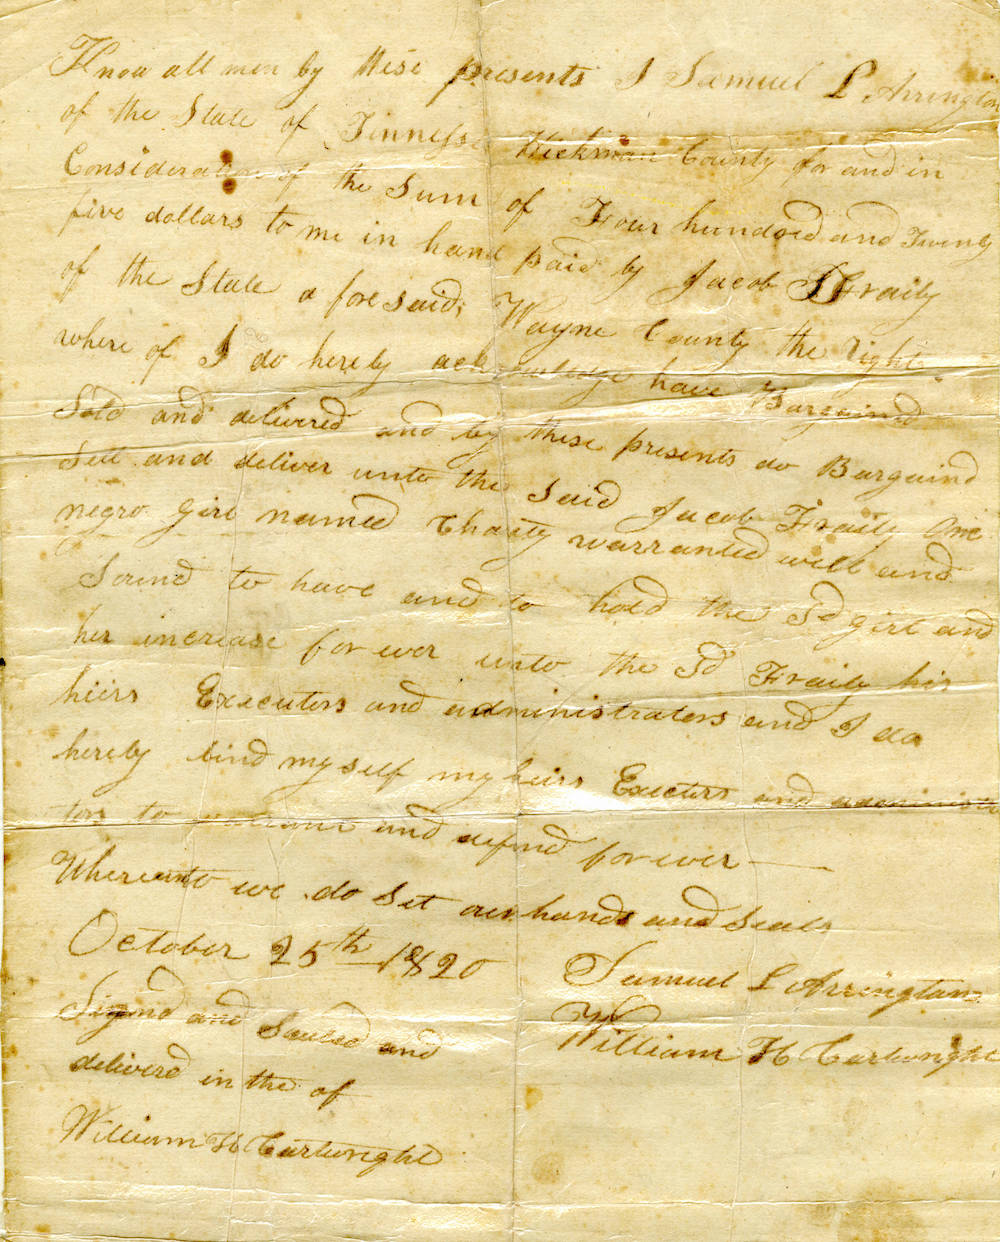 Know all men by these presents I Samuel L Arrington
of the State of Tennesse Hickman County for and in
Consideration of the Sum of Four hundred and Twenty
five dollars to me in hand paid by Jacob Fraily
of the State a fore said; Wayne County the right
where of I do hereby acknowledge have Bargaind
Sold and deliverd and by these presents do Bargaind
Sell and deliver unto the said Jacob Fraily One
negro girl named Charity warranted well and
Sound to have and to hold the Sd girl and
her increase for ever unto the Sd Fraily his
hiirs Executors and administrators and I do
hereby bind my self my heirs Exectors and
tors to and defend for ever —
Whereunto we do Set our hands and Seals
October 25th 1820
Samuel L Arrington
Signd and Sealed and
William H Cartwright
deliverd in the of
William H Cartwright